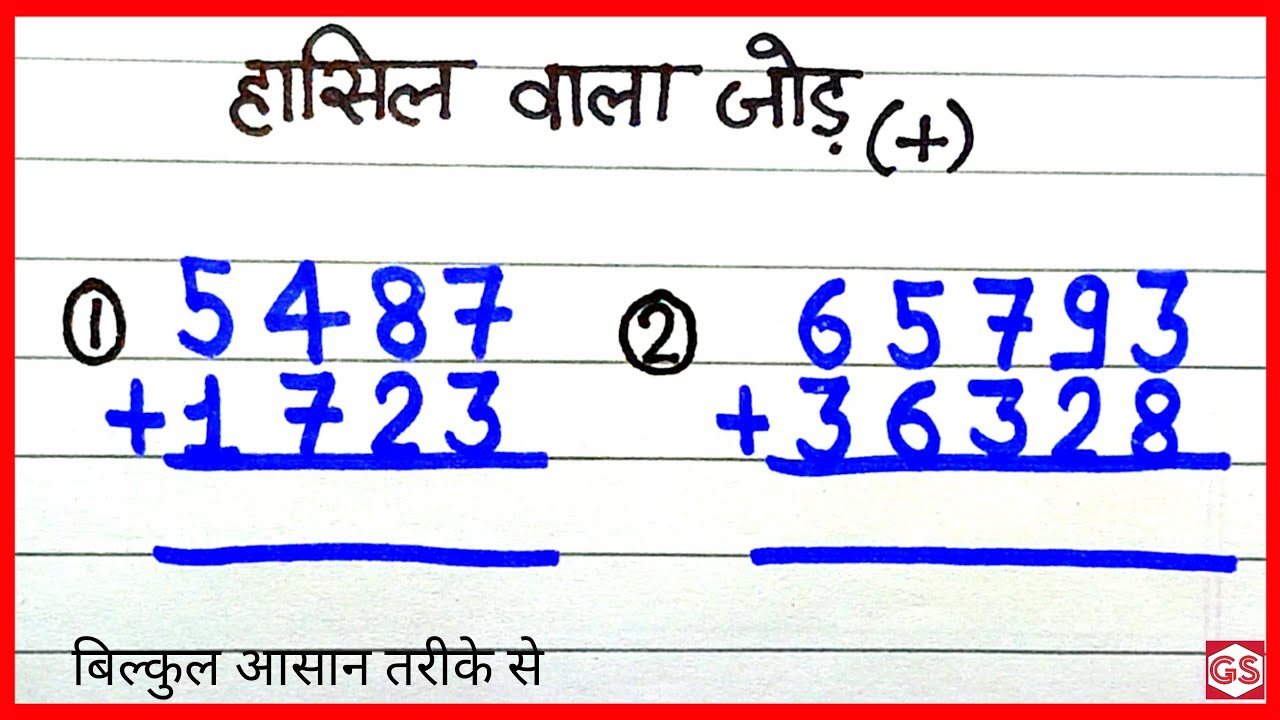 हासिल वाला जोड़ (+)
① 5487
+1723
② 65793
+36328
बिल्कुल आसान तरीके से
GS